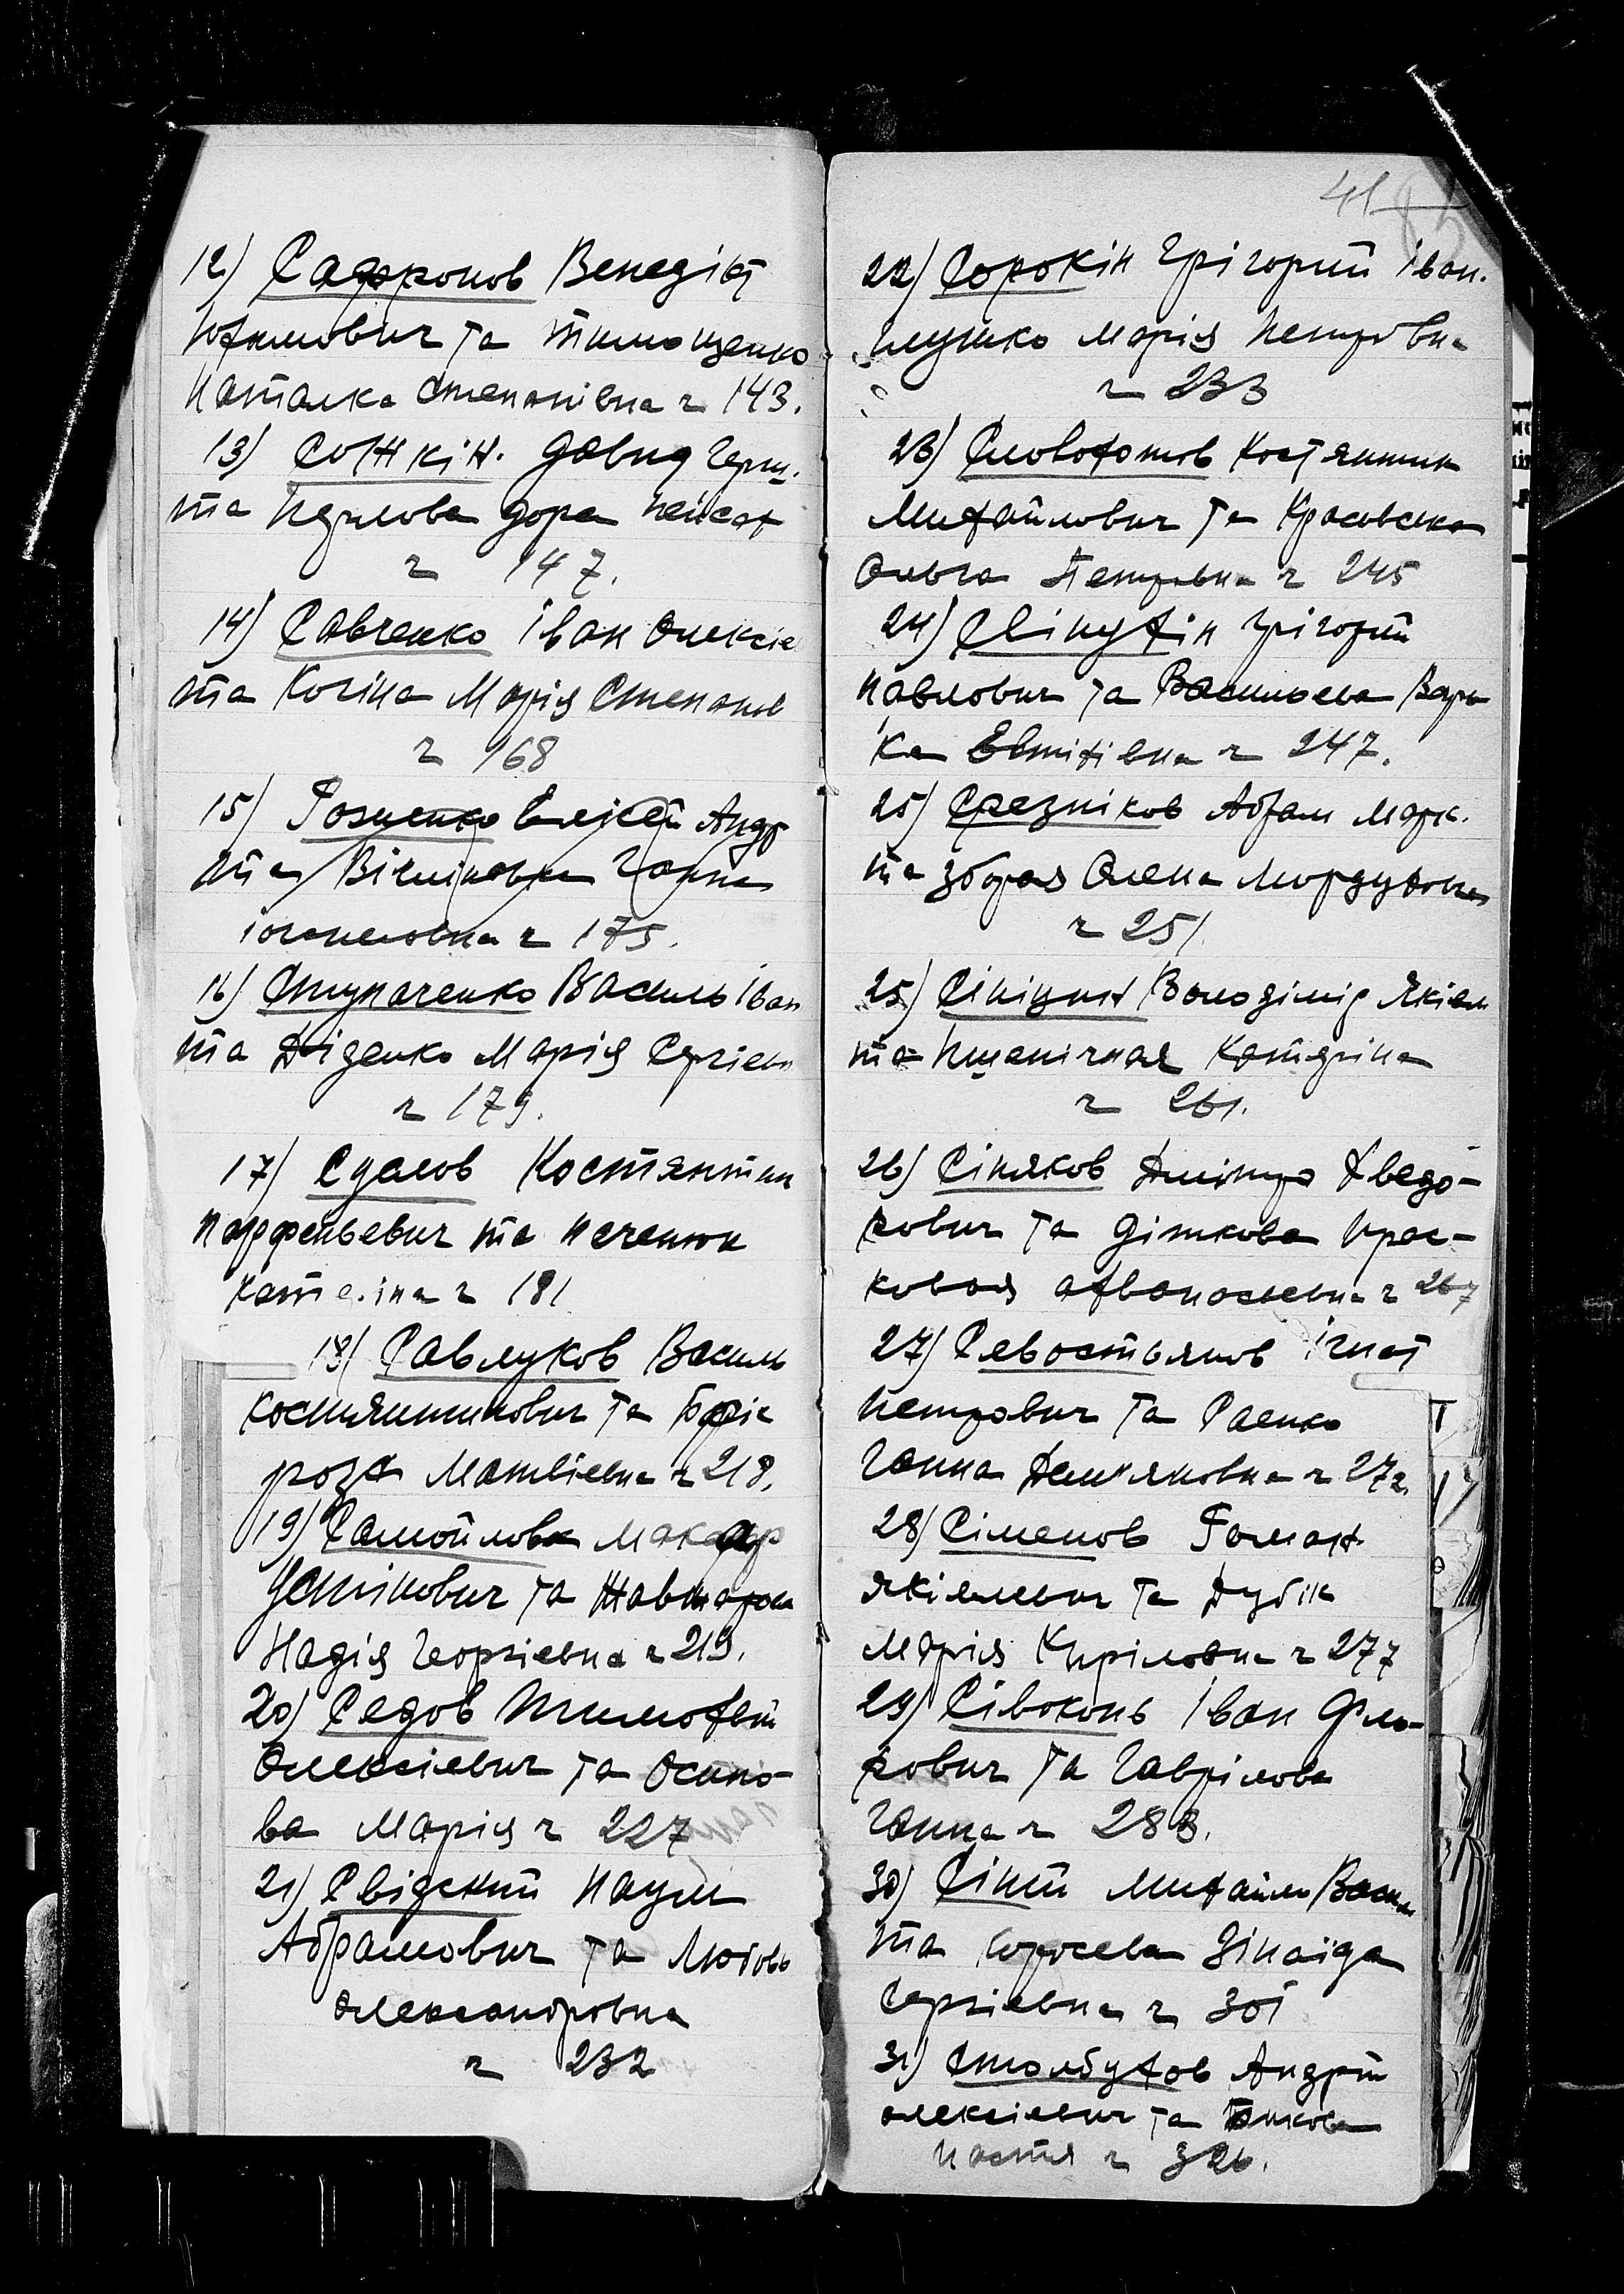 12) Сафронов Венедікт
Юхимович та Тимощенко
Наталка Степанівна г 143.
13) Сожкін. Давид Герш.
та Перлова Дора Пейсах
г 147.
14) Савченко Іван Олексіє
та Косіна Марія Степанів
г 168
15) Гозненко Елісей Андр
та Ганна
г 175.
16) Ступаченко Василь Іван
та Діденко Марія Сергіевн
г 179.
17) Судаков Костянтин
Парфеньевич та Печенюк
Кате.іна г 181
18) Савлуков Василь
Костянтинович та
роза Матвіевна г 218.
19) Самойлова Макар
Устінович та
Надія Георгіевна г 219.
20) Седов Тимофей
Олексіевич та Осипо-
ва Марія г 227
21) Свідский Наум
Абрамович та Любовь
Александровна
г 232
41
22) Сорокін Грігорий Іван.
Глушко Марія Петровна
г 233
23) Словохотов Костянтин
Михайлович та Красовська
Ольга Петровна г 245
24) Свінухін Грігорий
Павлович та Васильева Вар
ка Евтихіевна г 247.
25) Срезніков Абрам Марк.
та Збарая Олена Мордухова
г 251.
25) Сініцин Володімір Якімл
та Пшенічная Катеріна
г 261.
26) Сіняков Дмітро Хведо-
рович та Діткова Прас-
ковья Афванасьевна г 267
27) Севостьянов Ігнат
Петрович та Саенко
Ганна Дем'яновна г 272.
28) Сіменов Роман
Якімлевич та Дубік
Марія Кирілловна г 277
29) Сівоконь Іван Фло-
рович та Гаврілова
Ганна г 283.
30) Сіній Михайло Васил
та Зінаіда
Сергіевна г 301
31) Столбухов Андрій
Олексіевич та
Настя г 326.